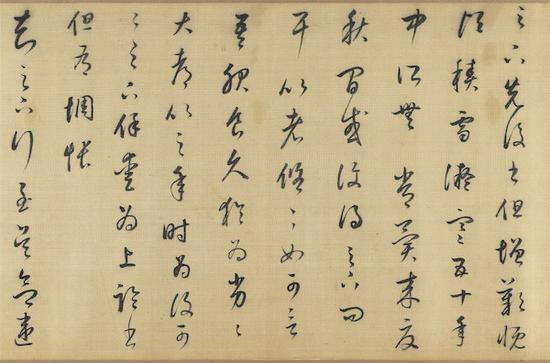 足下先後書但增歎慨
頃積雪凝寒五十年
中所無常冀來夏
秋間或復得足下問
耳比者悠悠如可言
吾服食久猶為劣劣
大都比之年時為復可
可足下保愛為上臨書
但有惆悵
知足下行至吳念違